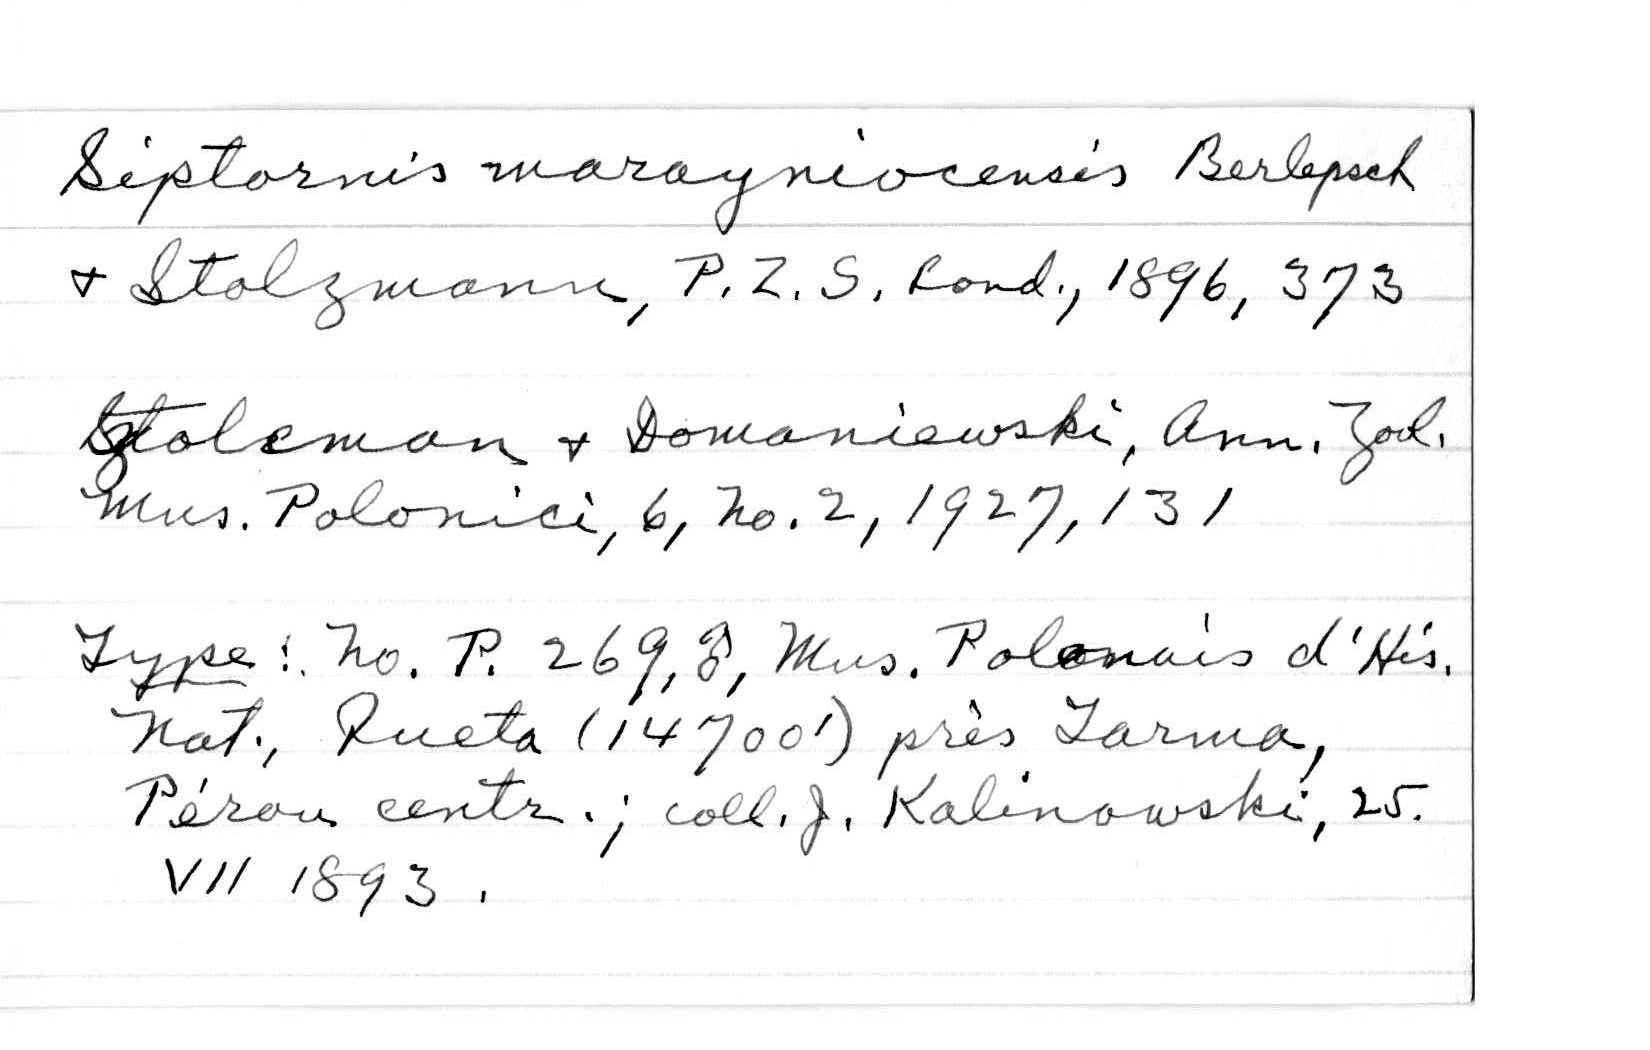 Siptornis marayniocensis Berlepsch
& Stolzmann, P.Z.S. Lond., 1896, 373
Sztolcman & Domaniewski, Ann. Zool.
Mus. Polonici, 6, no. 2, 1927, 131
Type: No. P. 269, ♂, Mus. Polonais d'His.
Nat., Queta (14700') près Tarma,
Pérou centr.; coll. J. Kalinowski, 25.
VII 1893.